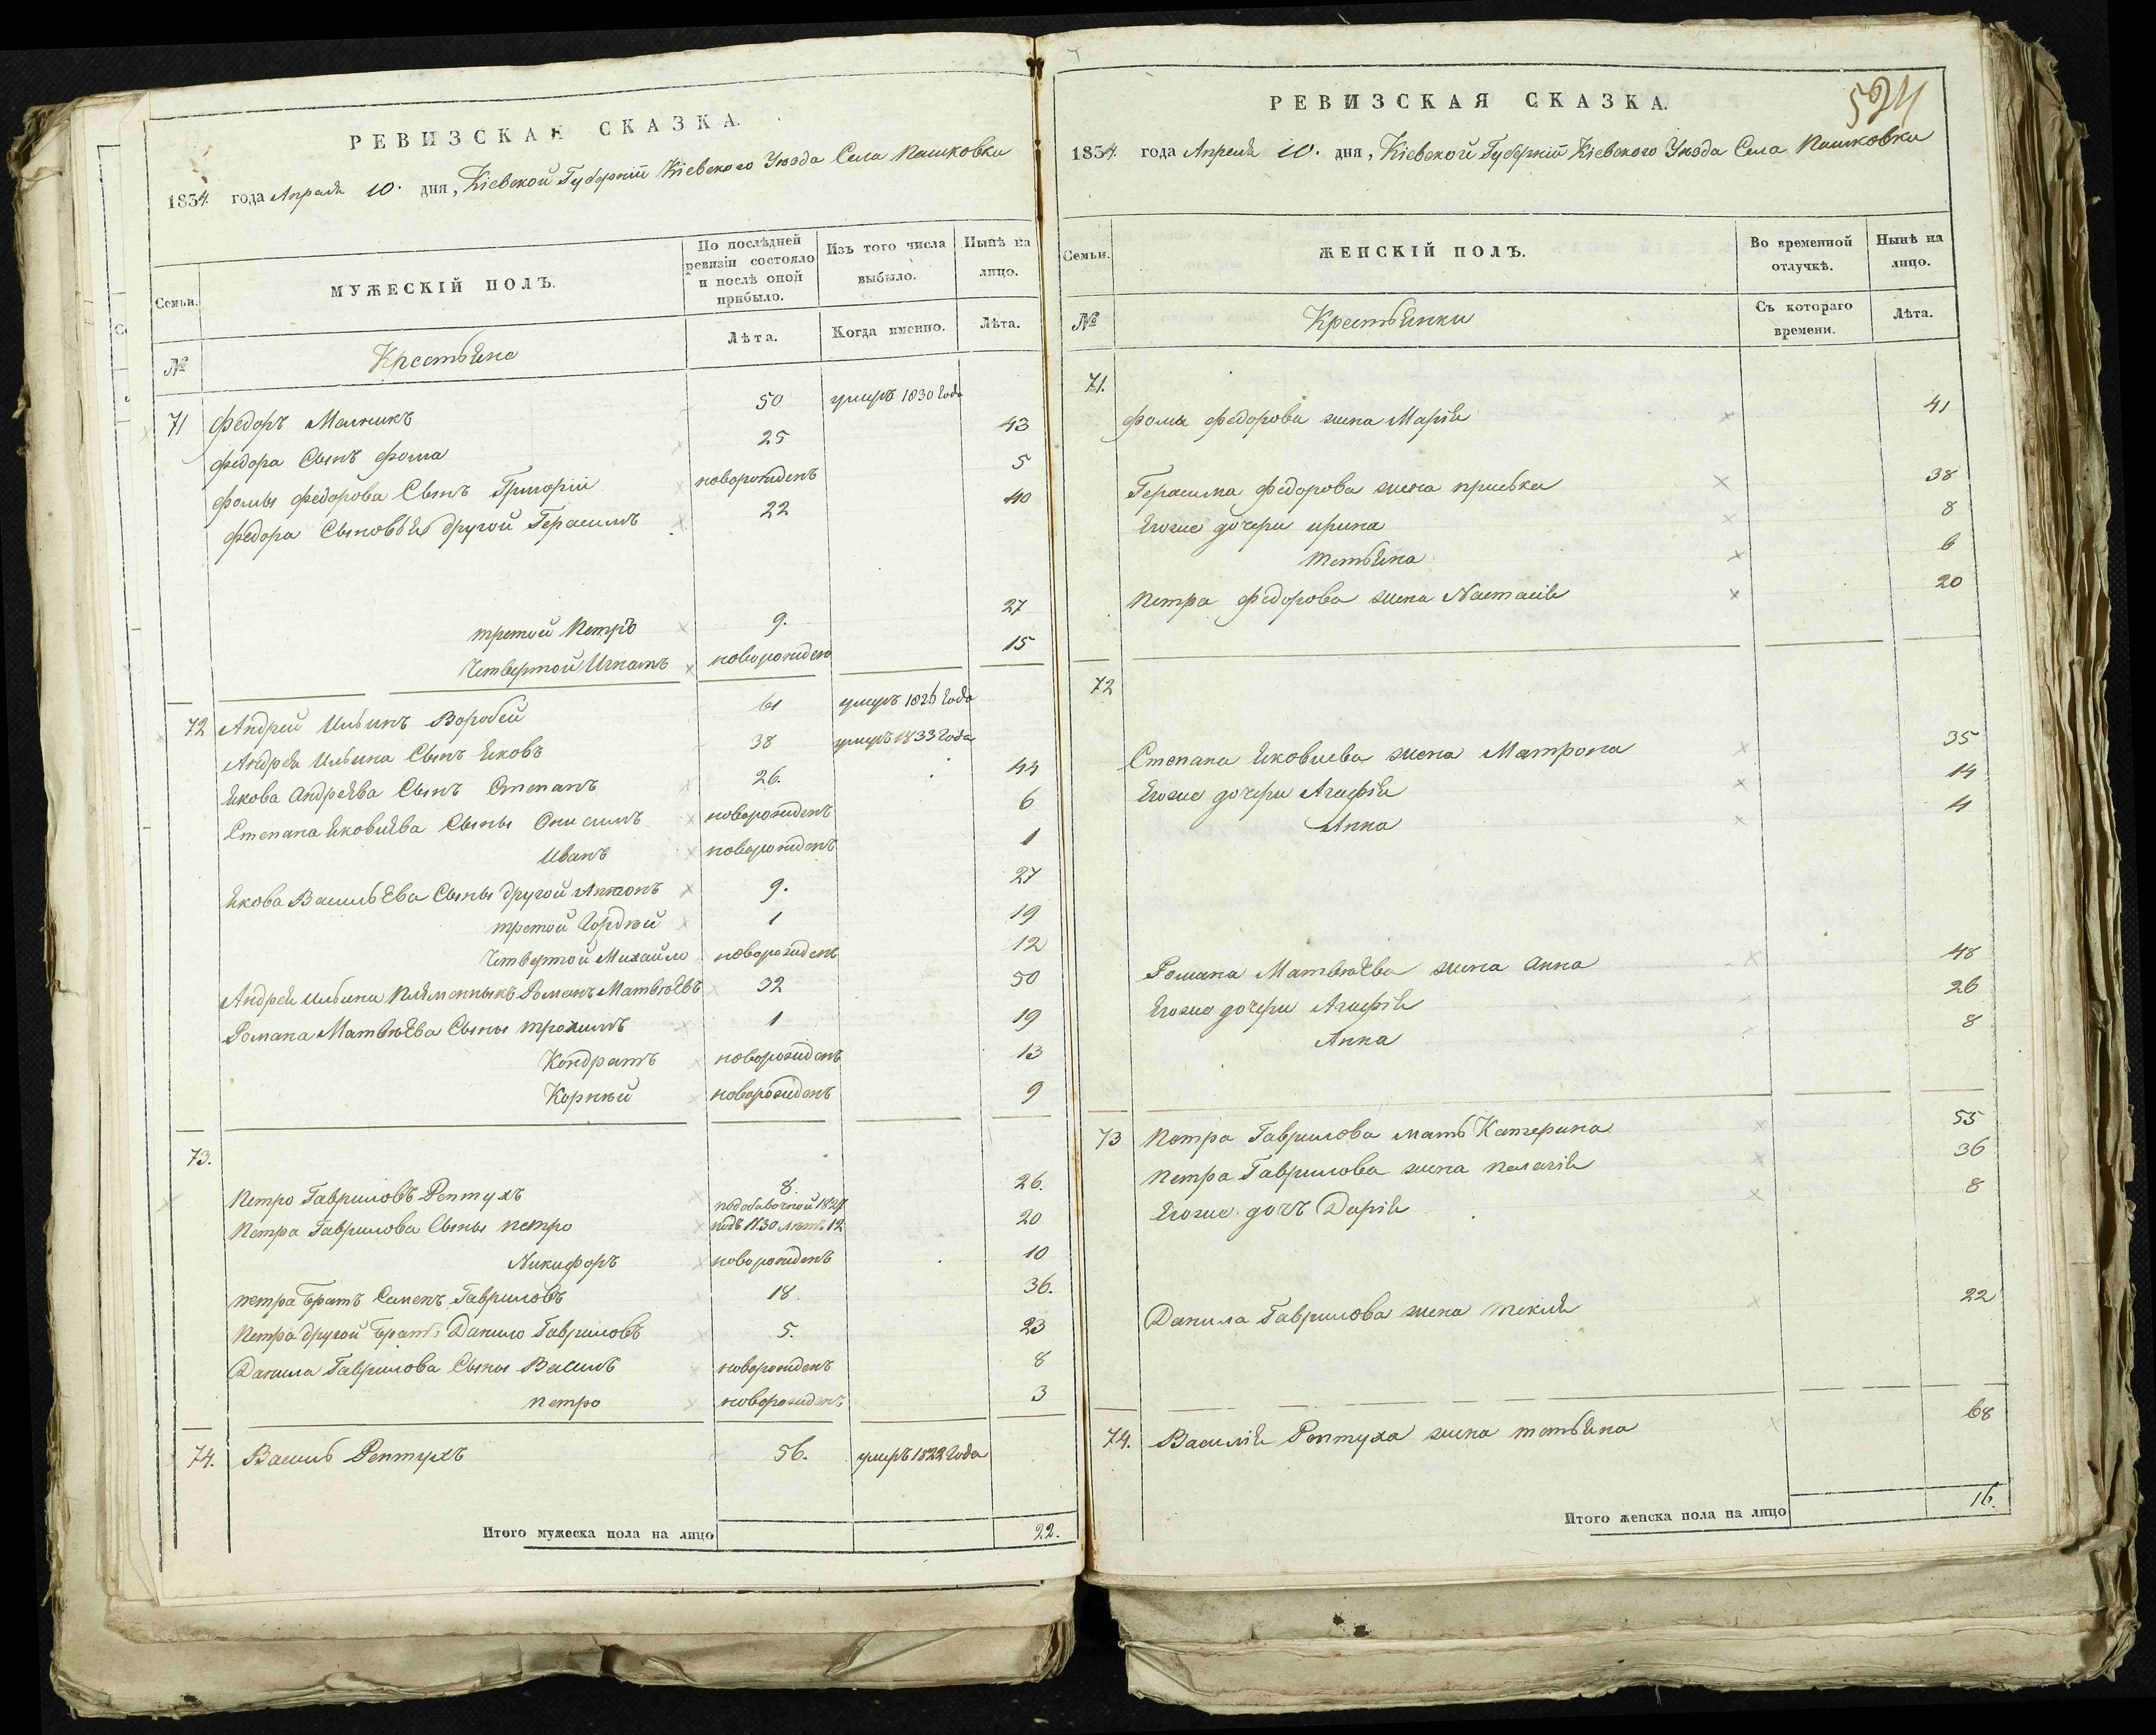 РЕВИЗСКАЯ СКАЗКА.
1834. года Апреля 10. дня, Кіевской Губерніи Кіевского Уезда Села Пашковки
Семьи.
МУЖЕСКІЙ ПОЛЪ.
По послѣдней ревизіи состояло и послѣ оной прибыло.
Изъ того числа выбыло.
Нынѣ на лицо.
№
Крестьяне
Лѣта.
Когда именно.
Лѣта.
71 Федоръ Малникъ 50 умеръ 1830 года
Федора Сынъ Фома 25 43
Фомы Федорова Сынъ Григорій новорожденъ 5
Федора Сыновья другой Герасимъ 22 40
третой Петръ 9. 27
Четвертой Игнатъ новорожден 15
72 Андрей Ильинъ Воробей 61 умеръ 1826 года
Андрея Ильина Сынъ Яковъ 38 умеръ 1833 года
Якова Андреева Сынъ Степанъ 26. 44
Степана Яковлева Сыны Онисимъ новорожденъ 6
Иванъ новорожденъ 1
Якова Васильева Сыны другой Антонъ 9. 27
третой Гордѣй 1 19
Четвертой Михайло новорожденъ 12
Андрея Ильина Племянникъ Романъ Матвѣевъ 32 50
Романа Матвѣева Сыны Трохимъ 1 19
Кондратъ новорожденъ 13
Корнѣй новорожденъ 9
73.
Петро Гавриловъ Рептухъ 8. 26.
Петра Гаврилова Сыны Петро подобавочной 1827 1830 лѣтъ 12 20
Никифоръ новорожденъ 10
Петра Братъ Семенъ Гавриловъ 18. 36.
Петра другой Братъ Данило Гавриловъ 5. 23
Данила Гаврилова Сыны Василь новорожденъ 8
Петро новорожденъ 3
74. Василь Рептухъ 56. умеръ 1822 года
Итого мужеска пола на лицо 22.
РЕВИЗСКАЯ СКАЗКА.
524
1834. года Апреля 10. дня, Кіевской Губерніи Кіевского Уезда Села Пашковки
Семьи.
ЖЕНСКІЙ ПОЛЪ.
Во временной отлучкѣ.
Нынѣ на лицо.
№
Крестьянки
Съ котораго времени.
Лѣта.
71.
Фомы Федорова жена Марія 41
Герасима Федорова жена Приська 38
Егоже дочери Ирина 8
Тетьяна 6
Петра Федорова жена Настасія 20
72
Степана Яковлева жена Матрона 35
Егоже дочери Агафія 14
Анна 4
Романа Матвѣева жена Анна 48
Егоже дочери Агафія 26
Анна 8
73 Петра Гаврилова мать Катерина 55
Петра Гаврилова жена Пелагія 36
Егоже дочъ Дарія 8
Данила Гаврилова жена Текля 22
74. Василія Рептуха жена Тетьяна 68
Итого женска пола на лицо 16.